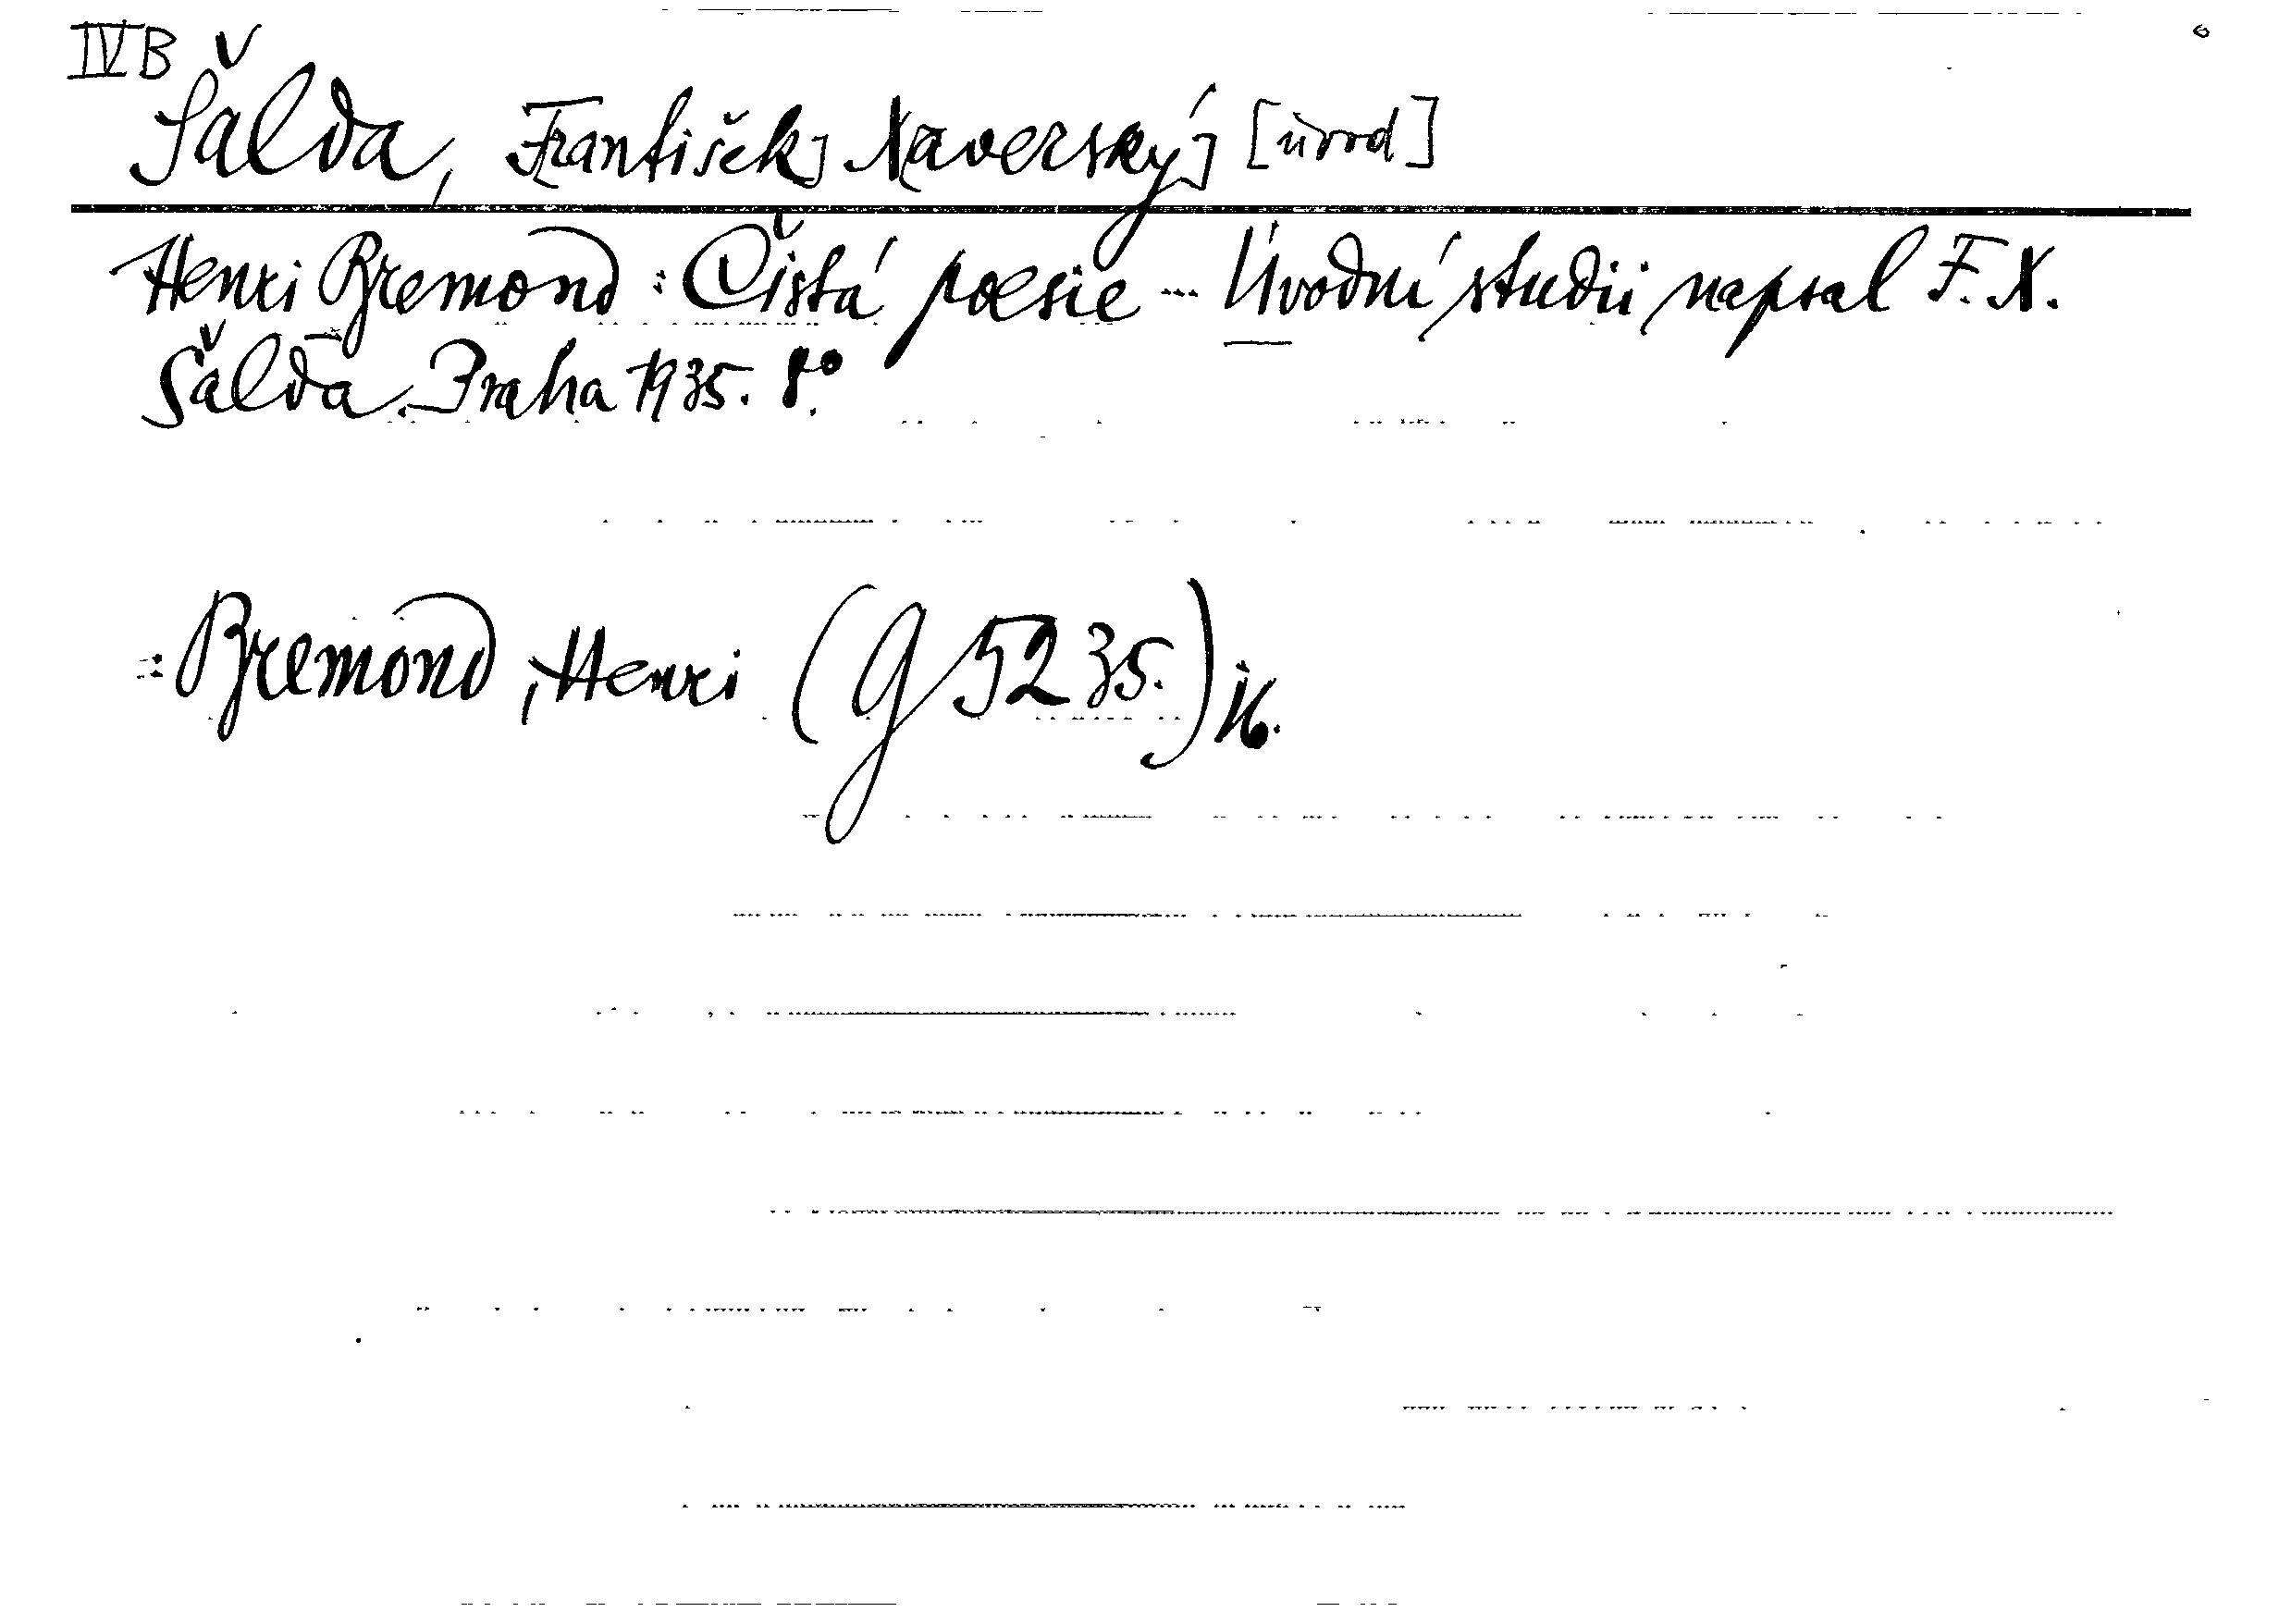 IVB
Šalda, F[rantišek] X[averský] [úvod]
Henri Bremond: Čistá poesie ... Úvodní studii napsal F. X.
Šalda. Praha 1935. 8°.
: Bremond, Henri (g 5235.)